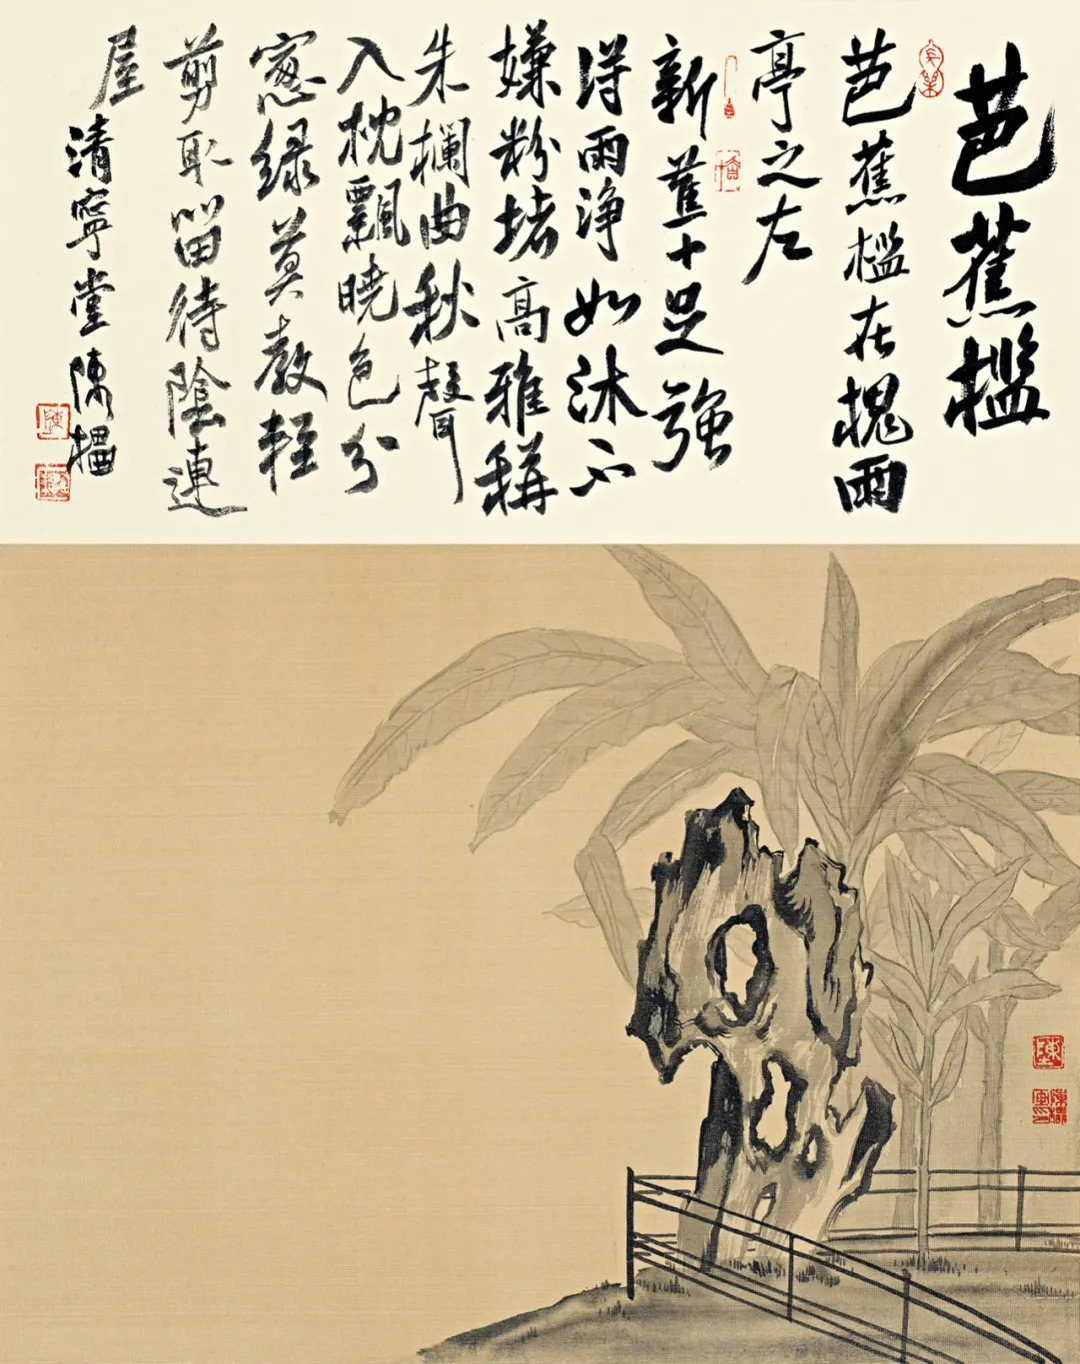 芭蕉檻
芭蕉檻在槐雨
亭之左
新蕉十尺強
得雨淨如沐不
嫌粉堵高雅稱
朱欄曲秋聲
入枕飄曉色分
窓綠莫教輕
剪取留待陰連
屋
清寧堂陳